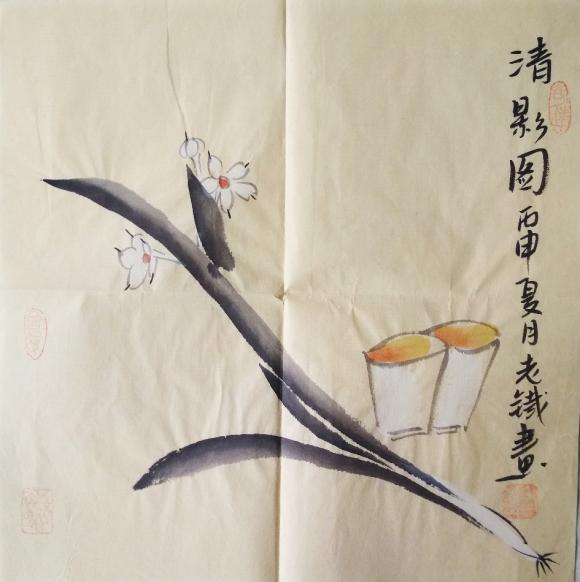 清影图丙申夏月老铁畫